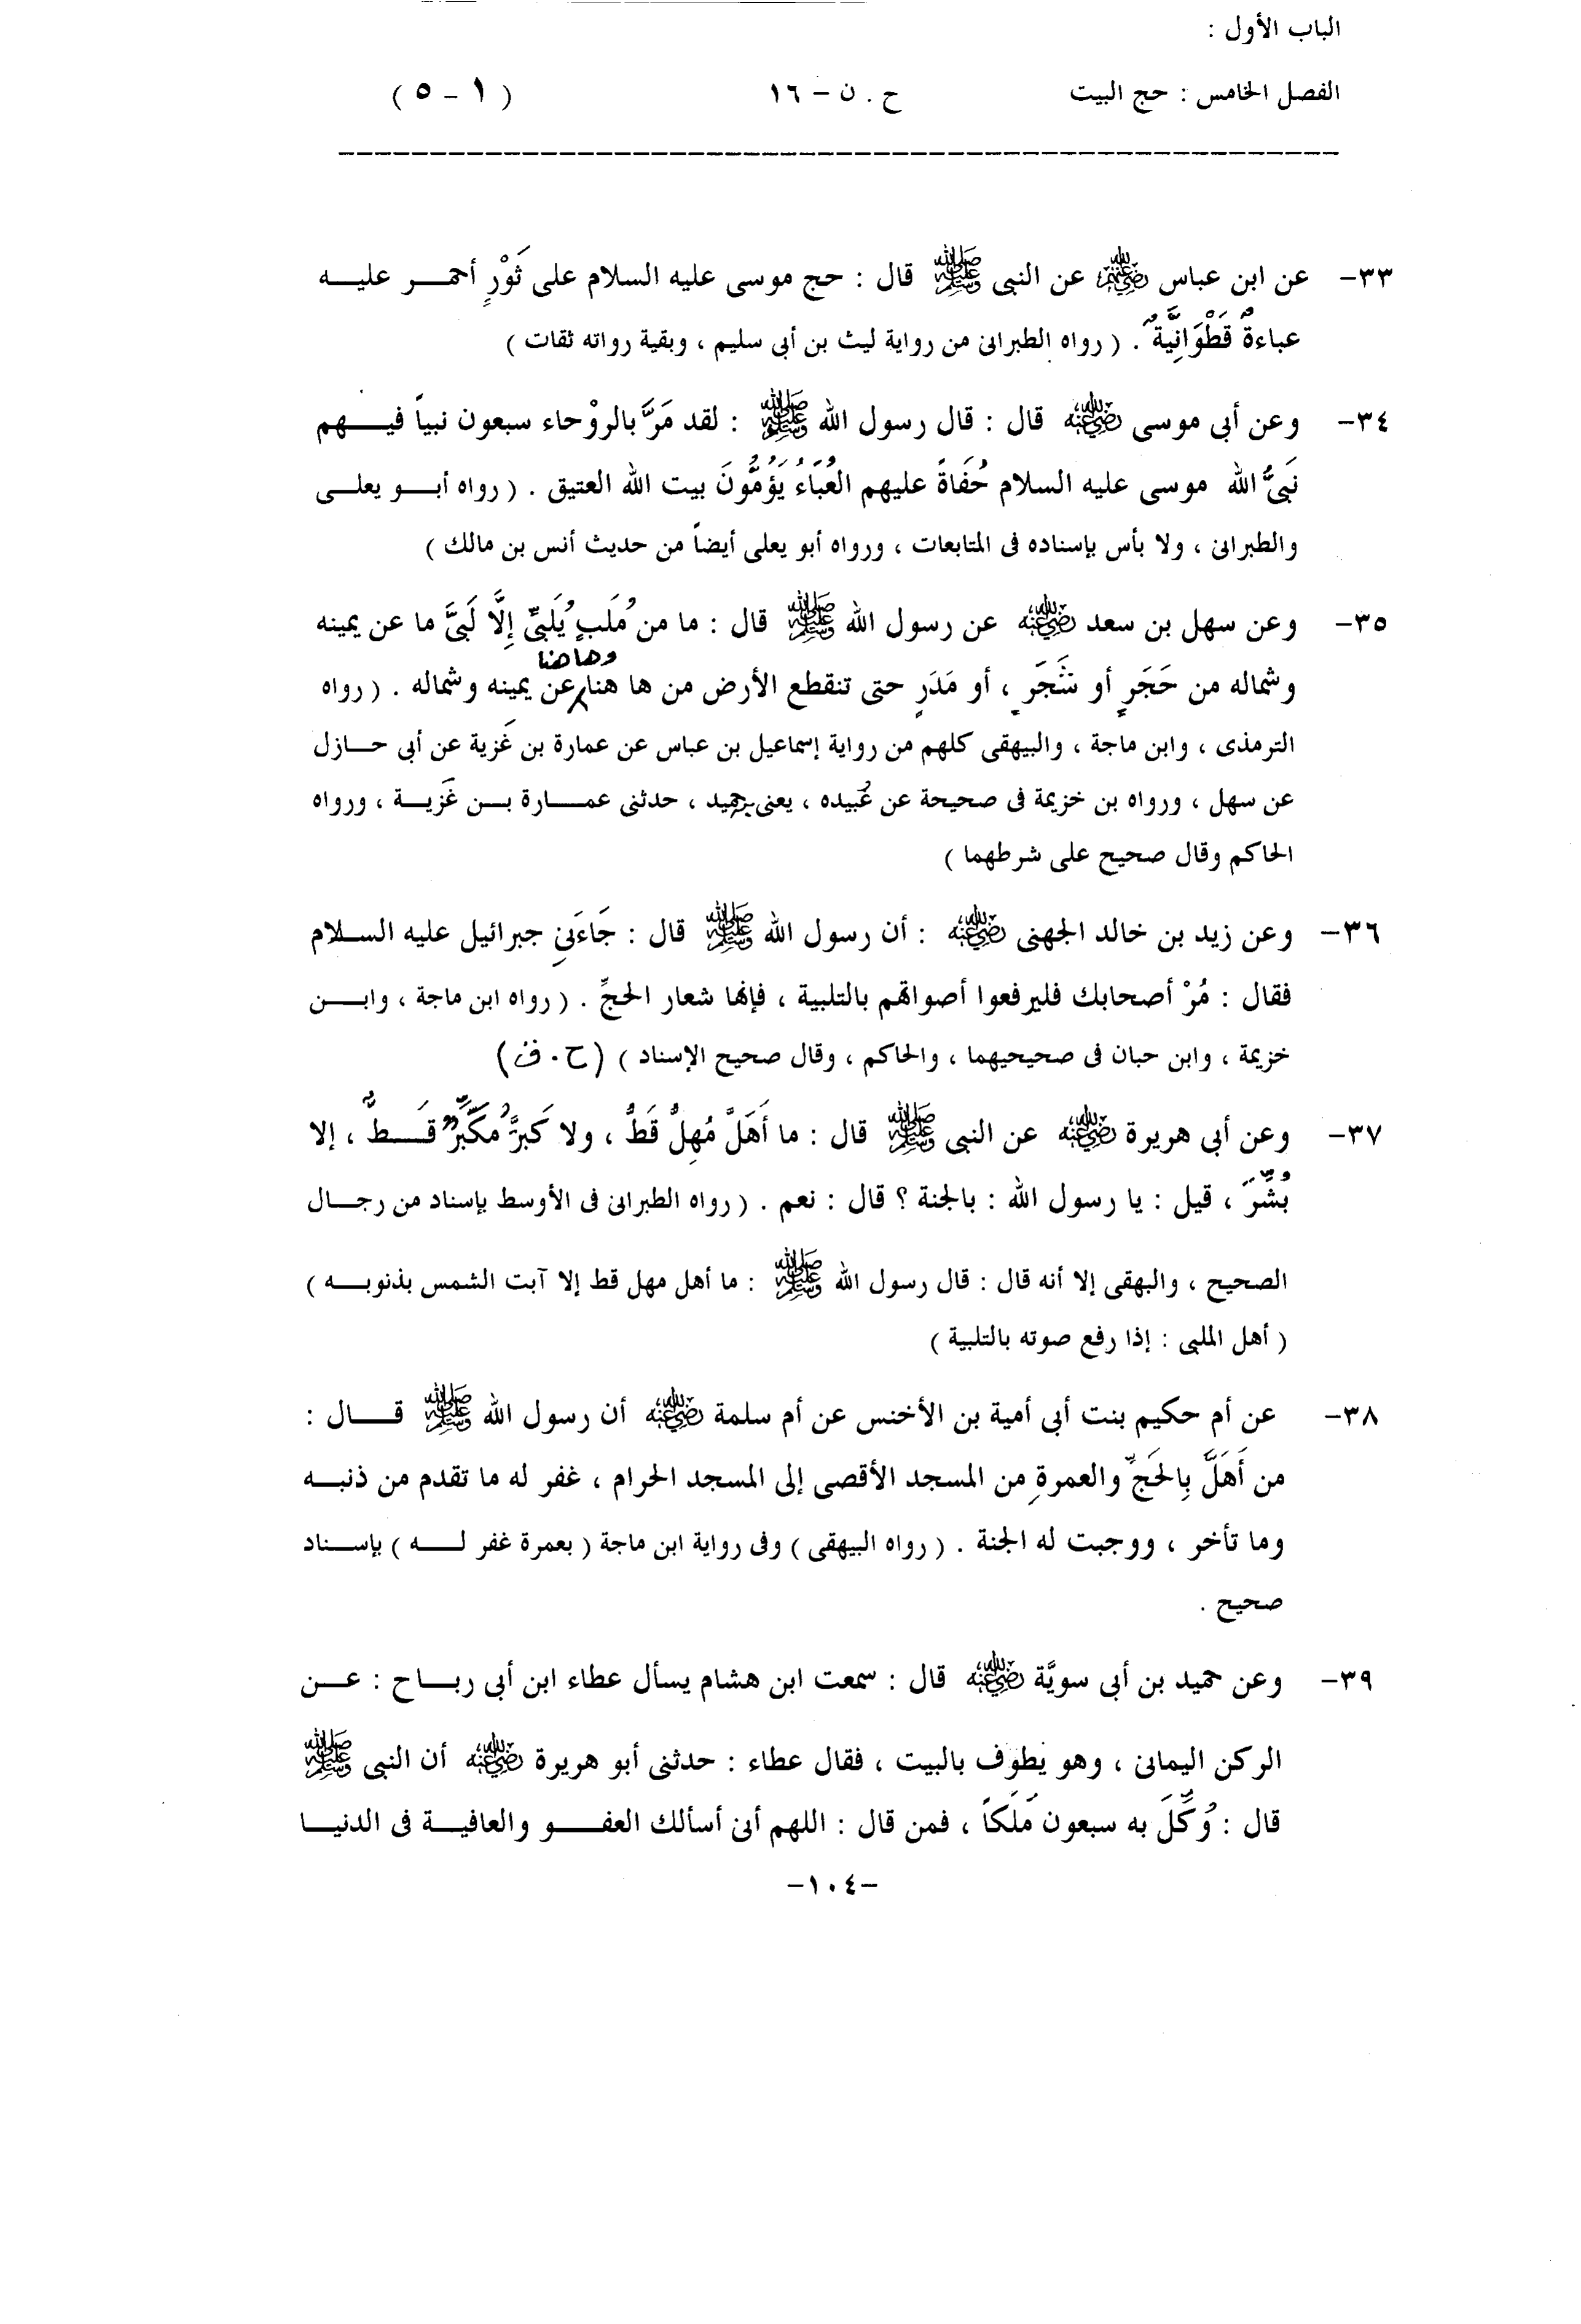 الباب الأول :
الفصل الخامس : حج البيت ح . ن – ١٦ ( ١ - ٥ )
٣٣- عن ابن عباس رضي الله عنهم عن النبى ﷺ قال : حج موسى عليه السلام على ثَوْرٍ أحمر عليه
عباءةٌ قَطْوَانِيَّةٌ . ( رواه الطبرانى من رواية ليث بن أبى سليم ، وبقية رواته ثقات )
٣٤- وعن أبى موسى رضي الله عنه قال : قال رسول الله ﷺ : لقد مَرَّ بالروْحاء سبعون نبياً فيهم
نَبىُّ الله موسى عليه السلام حُفَاةً عليهم العُبَاءُ يَؤُمُّونَ بيت الله العتيق . ( رواه أبو يعلى
والطبرانى ، ولا بأس بإسناده فى المتابعات ، ورواه أبو يعلى أيضاً من حديث أنس بن مالك )
٣٥- وعن سهل بن سعد رضي الله عنه عن رسول الله ﷺ قال : ما من مُلَبٍ يُلَبىِّ إلَّا لَبىَّ ما عن يمينه
وشماله من حَجَرٍ أو شَجَرٍ ، أو مَدَرٍ حتى تنقطع الأرض من ها هنا وها هنا عن يمينه وشماله . ( رواه
الترمذى ، وابن ماجة ، والبيهقى كلهم من رواية إسماعيل بن عباس عن عمارة بن غَزية عن أبى حازل
عن سهل ، ورواه بن خزيمة فى صحيحة عن عُبيده ، يعنى حميد ، حدثنى عمارة بن غَزية ، ورواه
الحاكم وقال صحيح على شرطهما )
٣٦- وعن زيد بن خالد الجهنى رضي الله عنه : أن رسول الله ﷺ قال : جَاءَنىِ جبرائيل عليه السلام
فقال : مُرْ أصحابك فليرفعوا أصواتهم بالتلبية ، فإنها شعار الحجِّ . ( رواه ابن ماجة ، وابن
خزيمة ، وابن حبان فى صحيحيهما ، والحاكم ، وقال صحيح الإسناد ) (ح . ن)
٣٧- وعن أبى هريرة رضي الله عنه عن النبى ﷺ قال : ما أَهَلَّ مُهِلٌّ قَطُّ ، ولا كَبرَّ مُكَبِّرٌ قَطُّ ، إلا
بُشِّرَ ، قيل : يا رسول الله : بالجنة ؟ قال : نعم . ( رواه الطبرانى فى الأوسط بإسناد من رجال
الصحيح ، والبهقى إلا أنه قال : قال رسول الله ﷺ : ما أهل مهل قط إلا آبت الشمس بذنوبه )
( أهل الملبى : إذا رفع صوته بالتلبية )
٣٨- عن أم حكيم بنت أبى أمية بن الأخنس عن أم سلمة رضي الله عنه أن رسول الله ﷺ قال :
من أَهَلَّ بِالحَجِّ والعمرةِ من المسجد الأقصى إلى المسجد الحرام ، غفر له ما تقدم من ذنبه
وما تأخر ، ووجبت له الجنة . ( رواه البيهقى ) وفى رواية ابن ماجة ( بعمرة غفر له ) بإسناد
صحيح .
٣٩- وعن حميد بن أبى سويَّة رضي الله عنه قال : سمعت ابن هشام يسأل عطاء ابن أبى رباح : عن
الركن اليمانى ، وهو يطوف بالبيت ، فقال عطاء : حدثنى أبو هريرة رضي الله عنه أن النبى ﷺ
قال : وُكِّلَ به سبعون مَلَكاً ، فمن قال : اللهم أنى أسألك العفو والعافية فى الدنيا
-١٠٤-